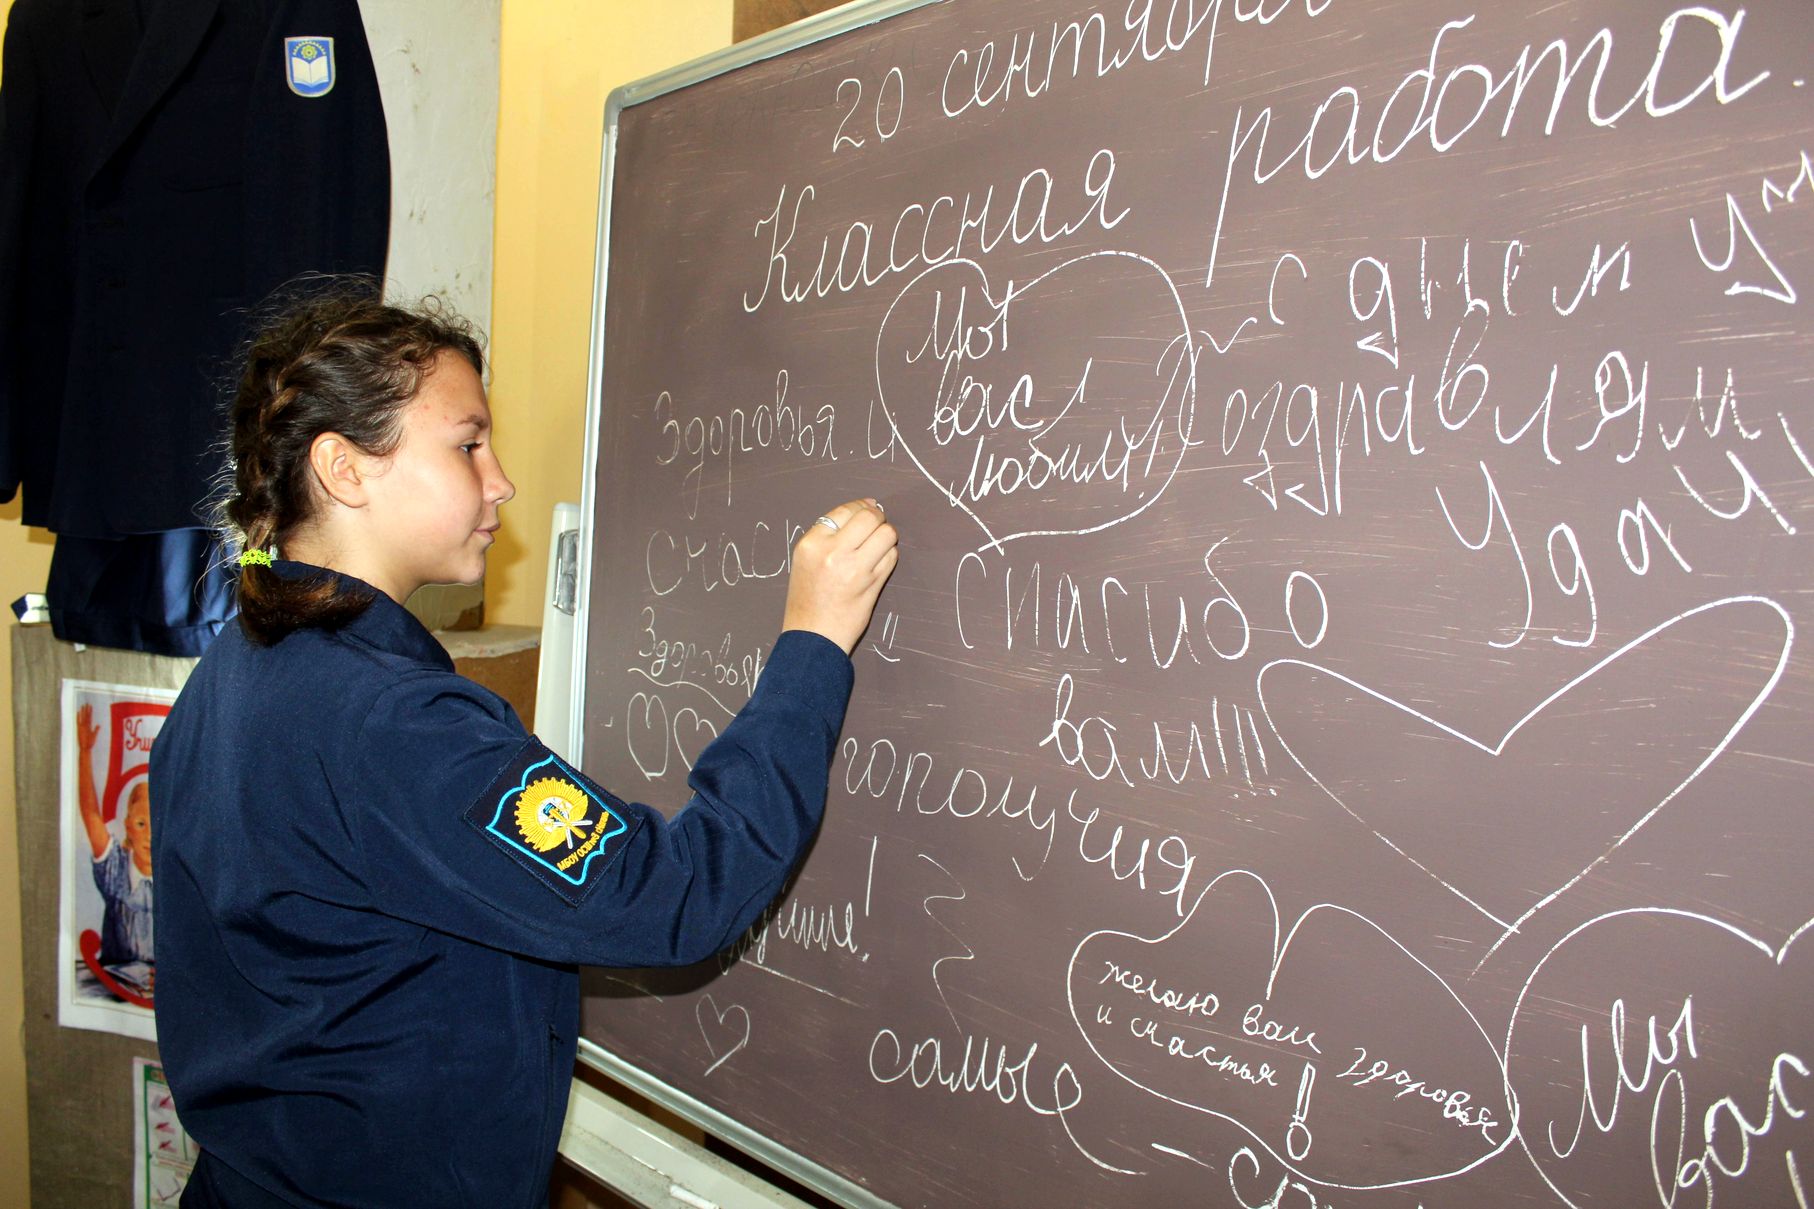 20 сентября
Классная работа.
Мы
вас
любим!
с днем
Здоровья.
поздравляем
Удачи
счаст
спасибо
вам!!!
Здоровья
гополучия
лучшие!
самые
желаю вам здоровья
и счастья!
Мы
вас
МБОУ ОСШ №3